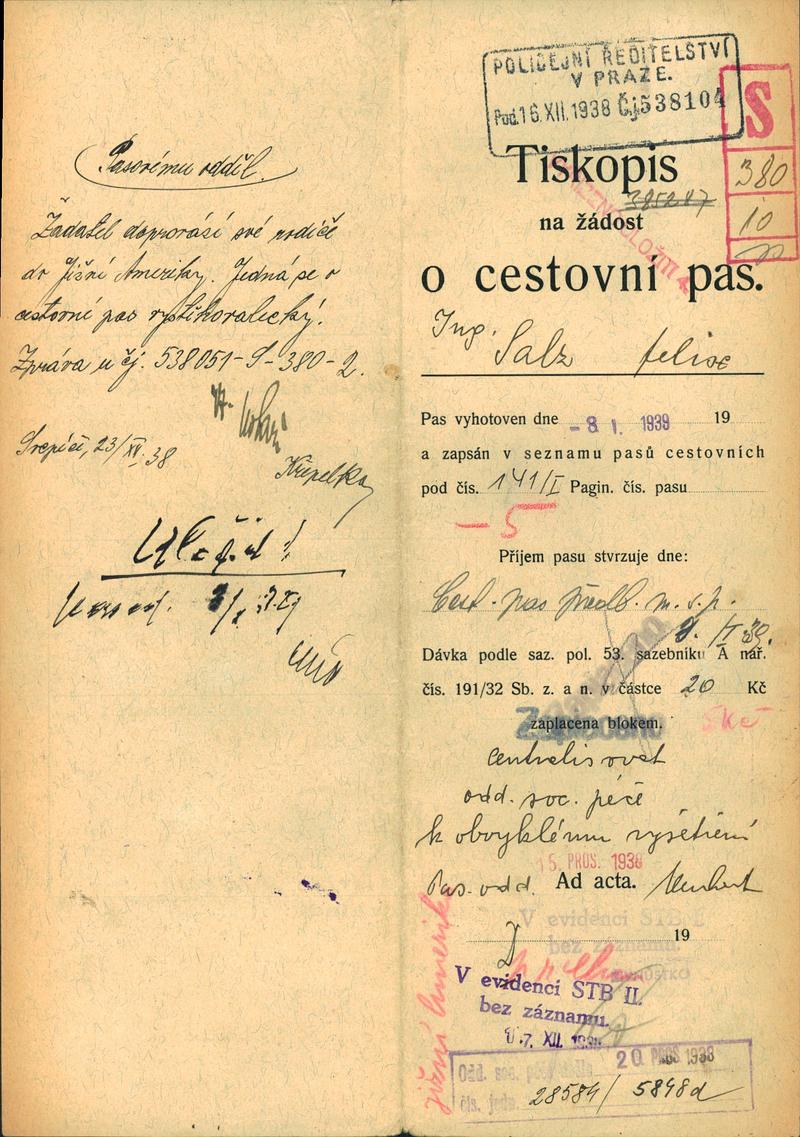 Pasovému odděl.
Žadatel doprovází své rodiče
do Jižní Ameriky. Jedná se o
cestovné pas vystěhovalecký.
Zpráva u čj. 538051-S-380-2.
23/XII.38
Křepelka
POLICEJNÍ ŘEDITELSTVÍ
V PRAZE.
Pod. 16.XII.1938 Čj. 538104
S
380
10
Tiskopis
385287
na žádost
o cestovní pas.
Ing. Salz Felix
Pas vyhotoven dne -8 I. 1939 19
a zapsán v seznamu pasů cestovních
pod čís. 141/I Pagin. čís. pasu
-5
Příjem pasu stvrzuje dne:
Cest. pas předl. m. s. p.
9. /I 39.
Dávka podle saz. pol. 53. sazebníku A nař.
čís. 191/32 Sb. z. a n. v částce 20 Kč
zaplacena blokem. 5Kč
Zaplaceno
centralisovat
odd. soc. péče
k obvyklému vyšetření
15. PROS. 1938
Pas. odd. Ad acta.
V evidenci STB II
bez záznamu.
19
jižní Amerika
V evidenci STB II.
bez záznamu.
17. XII. 1938
20 PROS 1938
Odd. soc.
čís. jedn. 28584/ 5848d